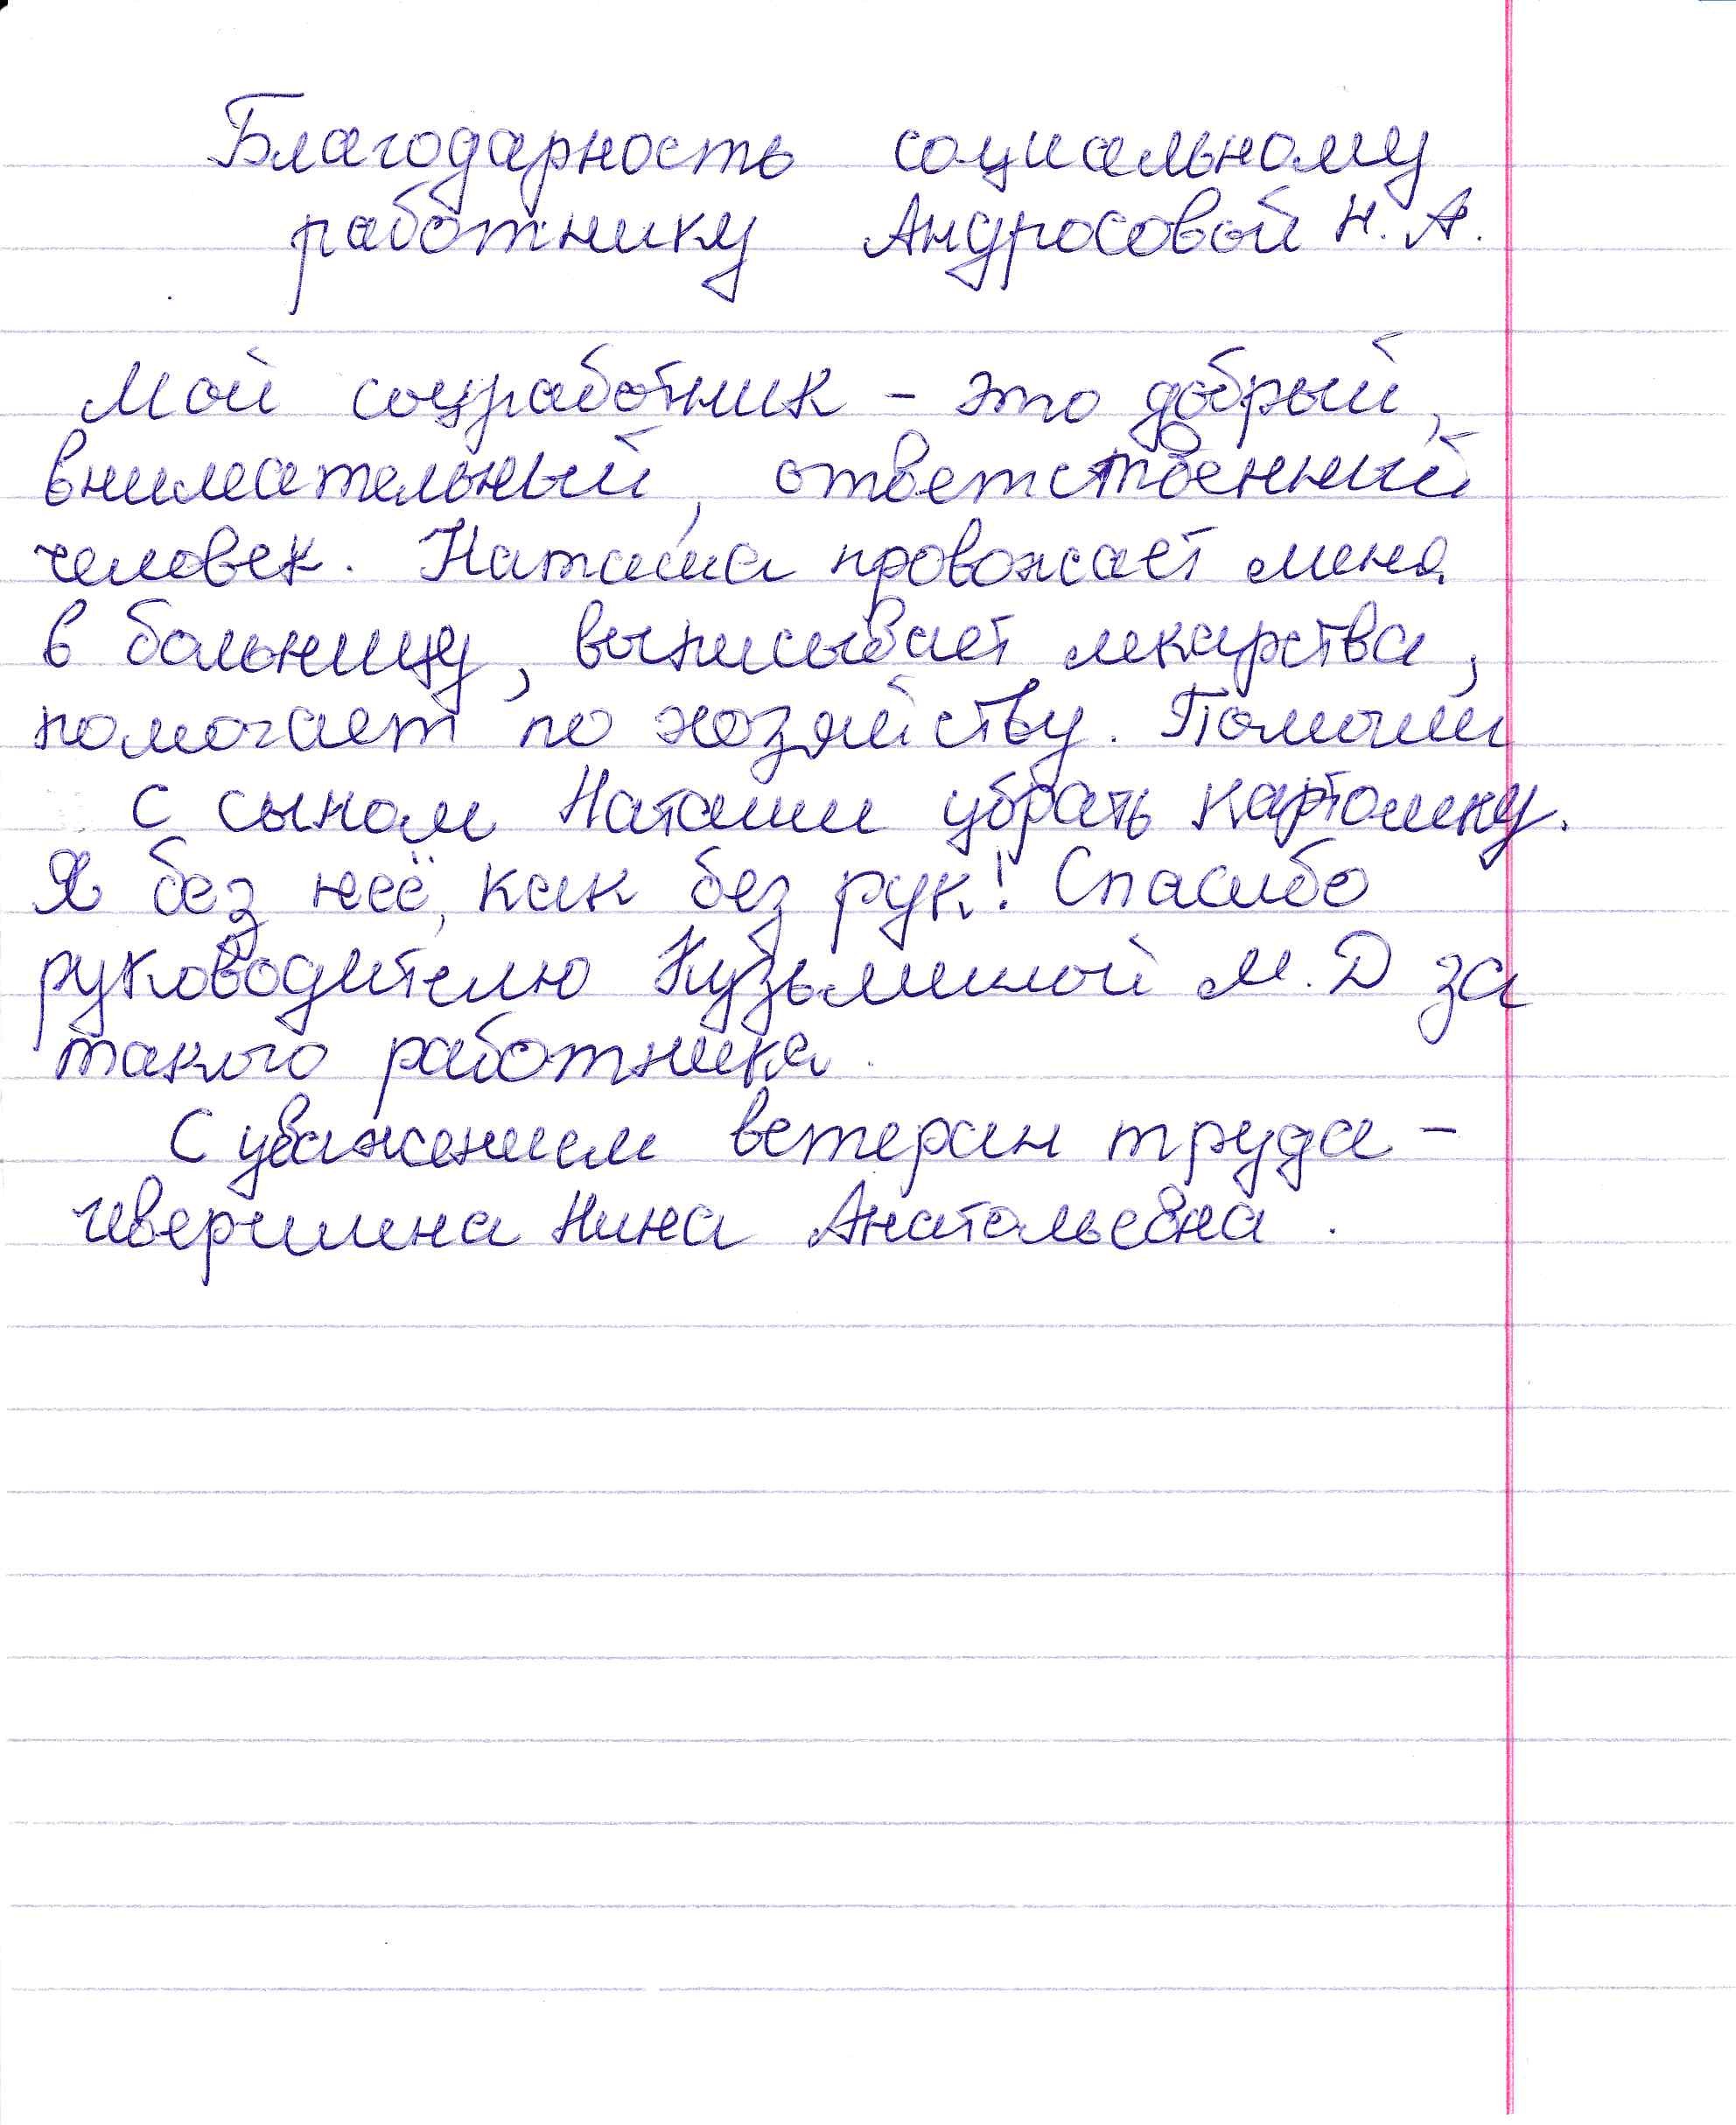 Благодарность социальному
работнику Андросовой Н. А.
Мой соцработник - это добрый,
внимательный, ответственный
человек. Наташа провожает меня
в больницу, выписывает лекарства,
помогает по хозяйству. Помогли
с сыном Наташи убрать картошку.
Я без неё, как без рук! Спасибо
руководителю Кузьминой М. Д за
такого работника.
С уважением ветеран труда -
Чевершина Нина Анатольевна.